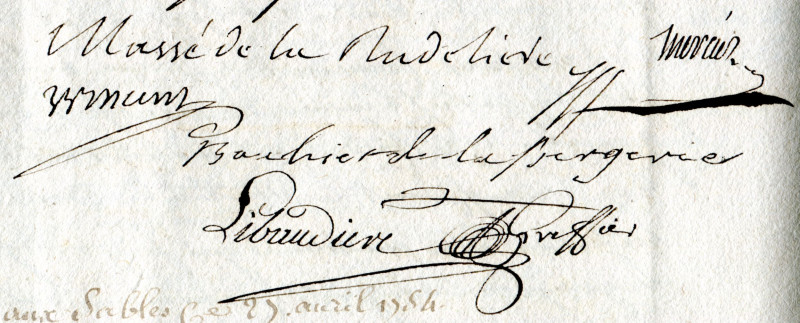 Massé de la Rudeliere mercier
Bouhier de la Bergerie
Libaudiere Greffier
aux Sables Ce 27. avril 1784.